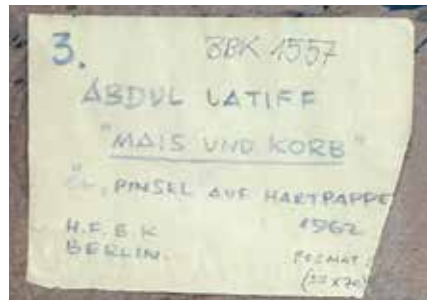 3. BBK 1557
ABDUL LATIFF
"MAIS UND KORB"
ÖL, PINSEL AUF HARTPAPPE
H.F.B.K 1962
BERLIN. FORMAT: